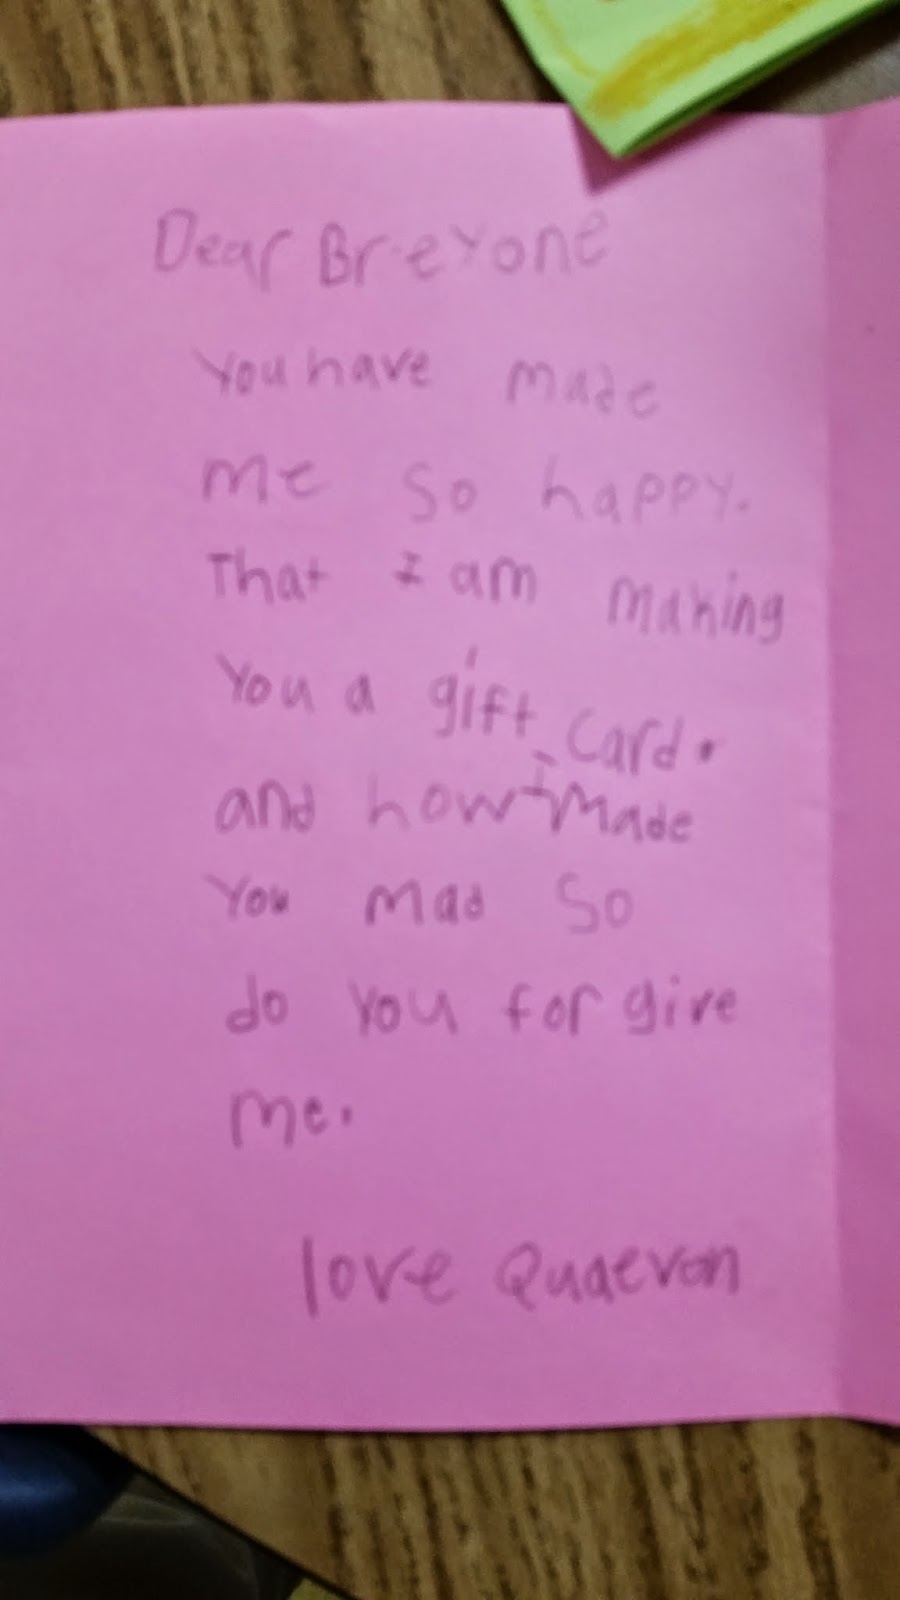 Dear Breyone
You have made
me so happy.
That I am making
you a gift card.
and how I made
you mad so
do you for give
me.
love Quaevon